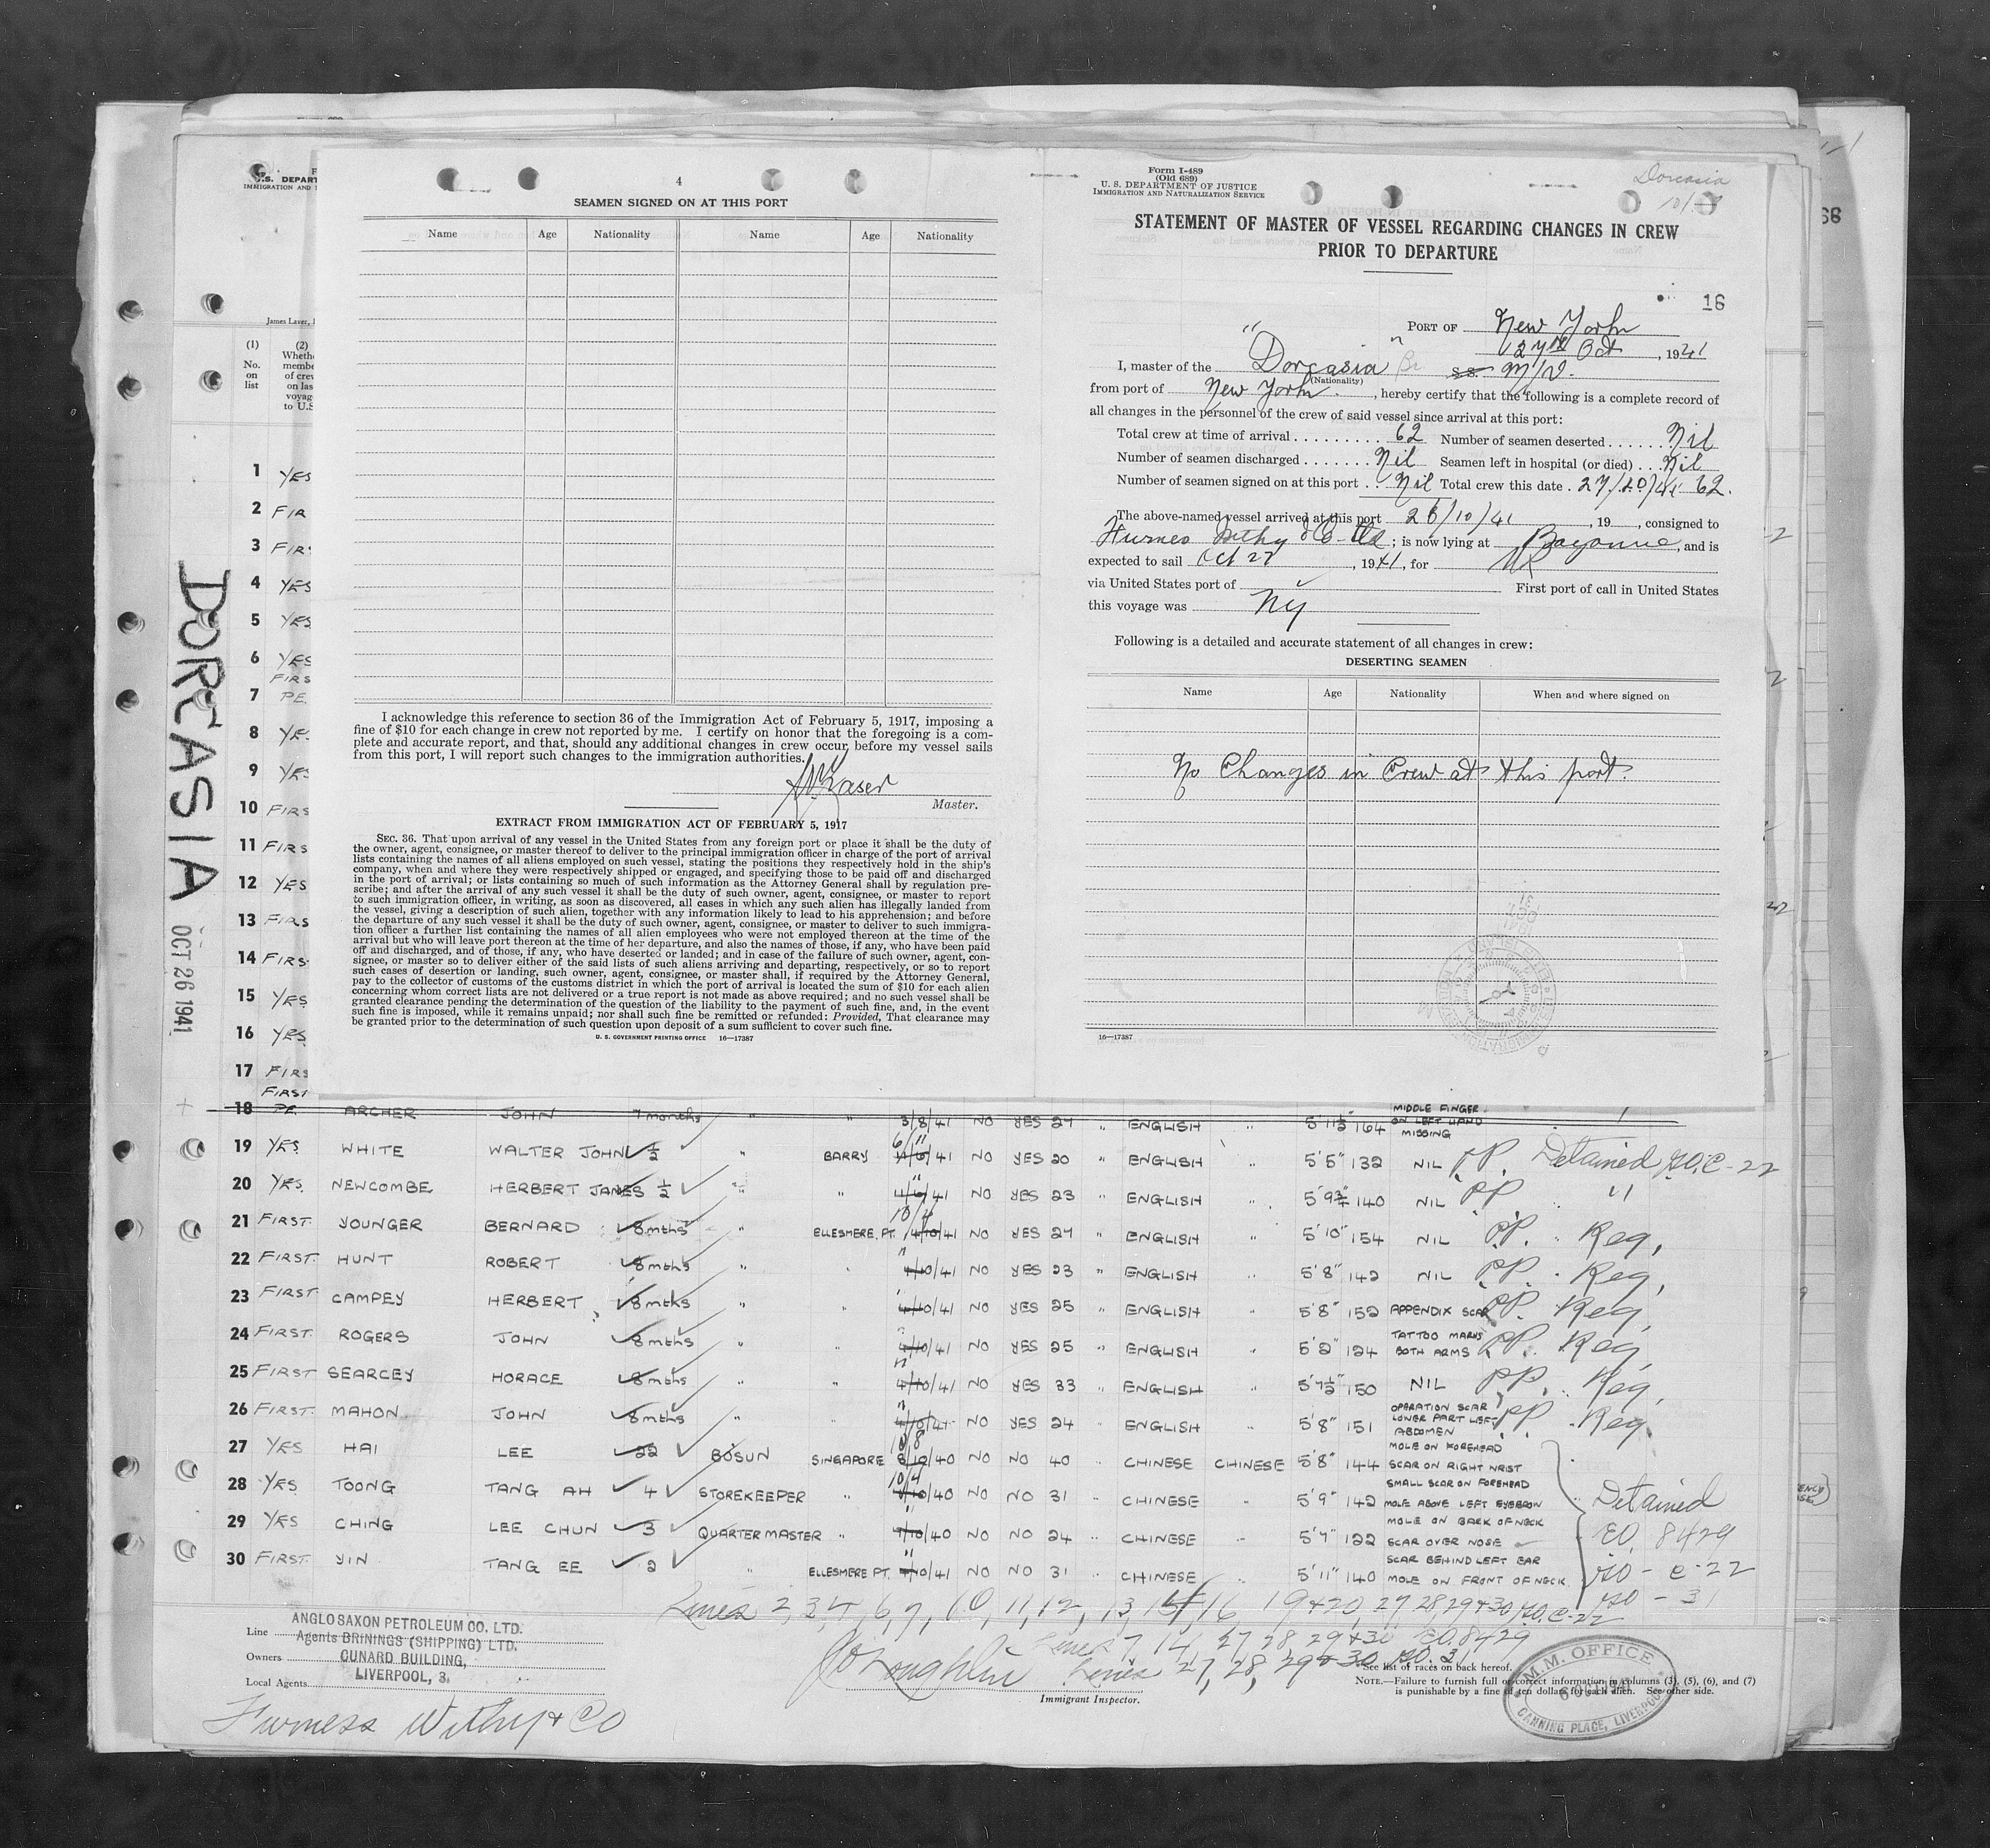 4
SEAMEN SIGNED ON AT THIS PORT
Name Age Nationality Name Age Nationality
I acknowledge this reference to section 36 of the Immigration Act of February 5, 1917, imposing a
fine of $10 for each change in crew not reported by me. I certify on honor that the foregoing is a com-
plete and accurate report, and that, should any additional changes in crew occur before my vessel sails
from this port, I will report such changes to the immigration authorities.
Master.
EXTRACT FROM IMMIGRATION ACT OF FEBRUARY 5, 1917
SEC. 36. That upon arrival of any vessel in the United States from any foreign port or place it shall be the duty of
the owner, agent, consignee, or master thereof to deliver to the principal immigration officer in charge of the port of arrival
lists containing the names of all aliens employed on such vessel, stating the positions they respectively hold in the ship's
company, when and where they were respectively shipped or engaged, and specifying those to be paid off and discharged
in the port of arrival; or lists containing so much of such information as the Attorney General shall by regulation pre-
scribe; and after the arrival of any such vessel it shall be the duty of such owner, agent, consignee, or master to report
to such immigration officer, in writing, as soon as discovered, all cases in which any such alien has illegally landed from
the vessel, giving a description of such alien, together with any information likely to lead to his apprehension; and before
the departure of any such vessel it shall be the duty of such owner, agent, consignee, or master to deliver to such immigra-
tion officer a further list containing the names of all alien employees who were not employed thereon at the time of the
arrival but who will leave port thereon at the time of her departure, and also the names of those, if any, who have been paid
off and discharged, and of those, if any, who have deserted or landed; and in case of the failure of such owner, agent, con-
signee, or master so to deliver either of the said lists of such aliens arriving and departing, respectively, or so to report
such cases of desertion or landing, such owner, agent, consignee, or master shall, if required by the Attorney General,
pay to the collector of customs of the customs district in which the port of arrival is located the sum of $10 for each alien
concerning whom correct lists are not delivered or a true report is not made as above required; and no such vessel shall be
granted clearance pending the determination of the question of the liability to the payment of such fine, and, in the event
such fine is imposed, while it remains unpaid; nor shall such fine be remitted or refunded: Provided, That clearance may
be granted prior to the determination of such question upon deposit of a sum sufficient to cover such fine.
U. S. GOVERNMENT PRINTING OFFICE 16—17387
Form I-489
(Old 689)
U. S. DEPARTMENT OF JUSTICE
IMMIGRATION AND NATURALIZATION SERVICE
Dorcasia
STATEMENT OF MASTER OF VESSEL REGARDING CHANGES IN CREW
PRIOR TO DEPARTURE
16
PORT OF New York
27th Oct, 1941
I, master of the "Dorcasia" Br S.S. M/V.
(Nationality)
from port of New York, hereby certify that the following is a complete record of
all changes in the personnel of the crew of said vessel since arrival at this port:
Total crew at time of arrival 62 Number of seamen deserted Nil
Number of seamen discharged Nil Seamen left in hospital (or died) Nil
Number of seamen signed on at this port Nil Total crew this date 27/10/41 62.
The above-named vessel arrived at this port 26/10/41, 19, consigned to
Furness Withy & Co Ltd; is now lying at Bayonne, and is
expected to sail Oct 27, 1941, for UK
via United States port of First port of call in United States
this voyage was NY
Following is a detailed and accurate statement of all changes in crew:
DESERTING SEAMEN
Name Age Nationality When and where signed on
No Changes in Crew at this port.
16—17387
U.S. DEPART
IMMIGRATION AND
James Laver,
(1) (2)
No. on list
DORCASIA
OCT 26 1941
1 YES
2 FIR
3 FIR
4 YES
5 YES
6 YES
FIRS
7 PE
8 YE
9 YES
10 FIRS
11 FIRS
12 YES
13 FIRS
14 FIRS
15 YES
16 YES
17 FIRS
FIRST
18 PE. ARCHER JOHN 7 months " " 3/8/41 NO YES 24 " ENGLISH " 5'11½" 164 MIDDLE FINGER ON LEFT HAND MISSING
19 YES WHITE WALTER JOHN ½ " BARRY 6/ 41 NO YES 20 " ENGLISH " 5'5" 132 NIL PP. Detained P.O. C-22
20 YES. NEWCOMBE HERBERT JAMES ½ " " 41 NO YES 23 " ENGLISH " 5'9¾ 140 NIL PP "
21 FIRST. YOUNGER BERNARD 8mths " ELLESMERE. PT. 10/41 NO YES 24 " ENGLISH " 5'10" 154 NIL PP. Reg.
22 FIRST. HUNT ROBERT 8mths " " 10/41 NO YES 23 " ENGLISH " 5'8" 142 NIL PP. Reg.
23 FIRST. CAMPEY HERBERT 8mths " " 10/41 NO YES 25 " ENGLISH " 5'8" 152 APPENDIX SCAR PP. Reg.
24 FIRST. ROGERS JOHN 8mths " " 10/41 NO YES 25 " ENGLISH " 5'2" 124 TATTOO MARKS BOTH ARMS PP. Reg
25 FIRST SEARCEY HORACE 8mths " " 10/41 NO YES 33 " ENGLISH " 5'7½" 150 NIL PP. Reg.
26 FIRST. MAHON JOHN 8mths " " 10/41 NO YES 24 " ENGLISH " 5'8" 151 OPERATION SCAR LOWER PART LEFT ABDOMEN PP. Reg.
27 YES HAI LEE 22 BOSUN SINGAPORE 40 NO NO 40 " CHINESE CHINESE 5'8" 144 MOLE ON FOREHEAD SCAR ON RIGHT WRIST
28 YES TOONG TANG AH 4 STOREKEEPER " 40 NO NO 31 " CHINESE " 5'9" 142 SMALL SCAR ON FOREHEAD MOLE ABOVE LEFT EYEBROW Detained
29 YES CHING LEE CHUN 3 QUARTERMASTER " 40 NO NO 24 " CHINESE " 5'7" 122 MOLE ON BACK OF NECK SCAR OVER NOSE EO. 8429
30 FIRST. YIN TANG EE 2 " ELLESMERE PT. 10/41 NO NO 31 " CHINESE " 5'11" 140 SCAR BEHIND LEFT EAR MOLE ON FRONT OF NECK. PO - C-22
PO - 31
Line
Owners
Local Agents
ANGLO SAXON PETROLEUM CO. LTD.
Agents BRININGS (SHIPPING) LTD.
CUNARD BUILDING,
LIVERPOOL, 3.
Furness Withy & Co
Lines 7, 14, 27 28 29 + 30 EO. 8429
Lines 27, 28, 29 + 30 P.O. 31
Immigrant Inspector.
*See list of races on back hereof.
NOTE.—Failure to furnish full or correct information in columns (3), (5), (6), and (7)
is punishable by a fine of ten dollars for each alien. See other side.
M.M. OFFICE
CANNING PLACE, LIVERPOOL